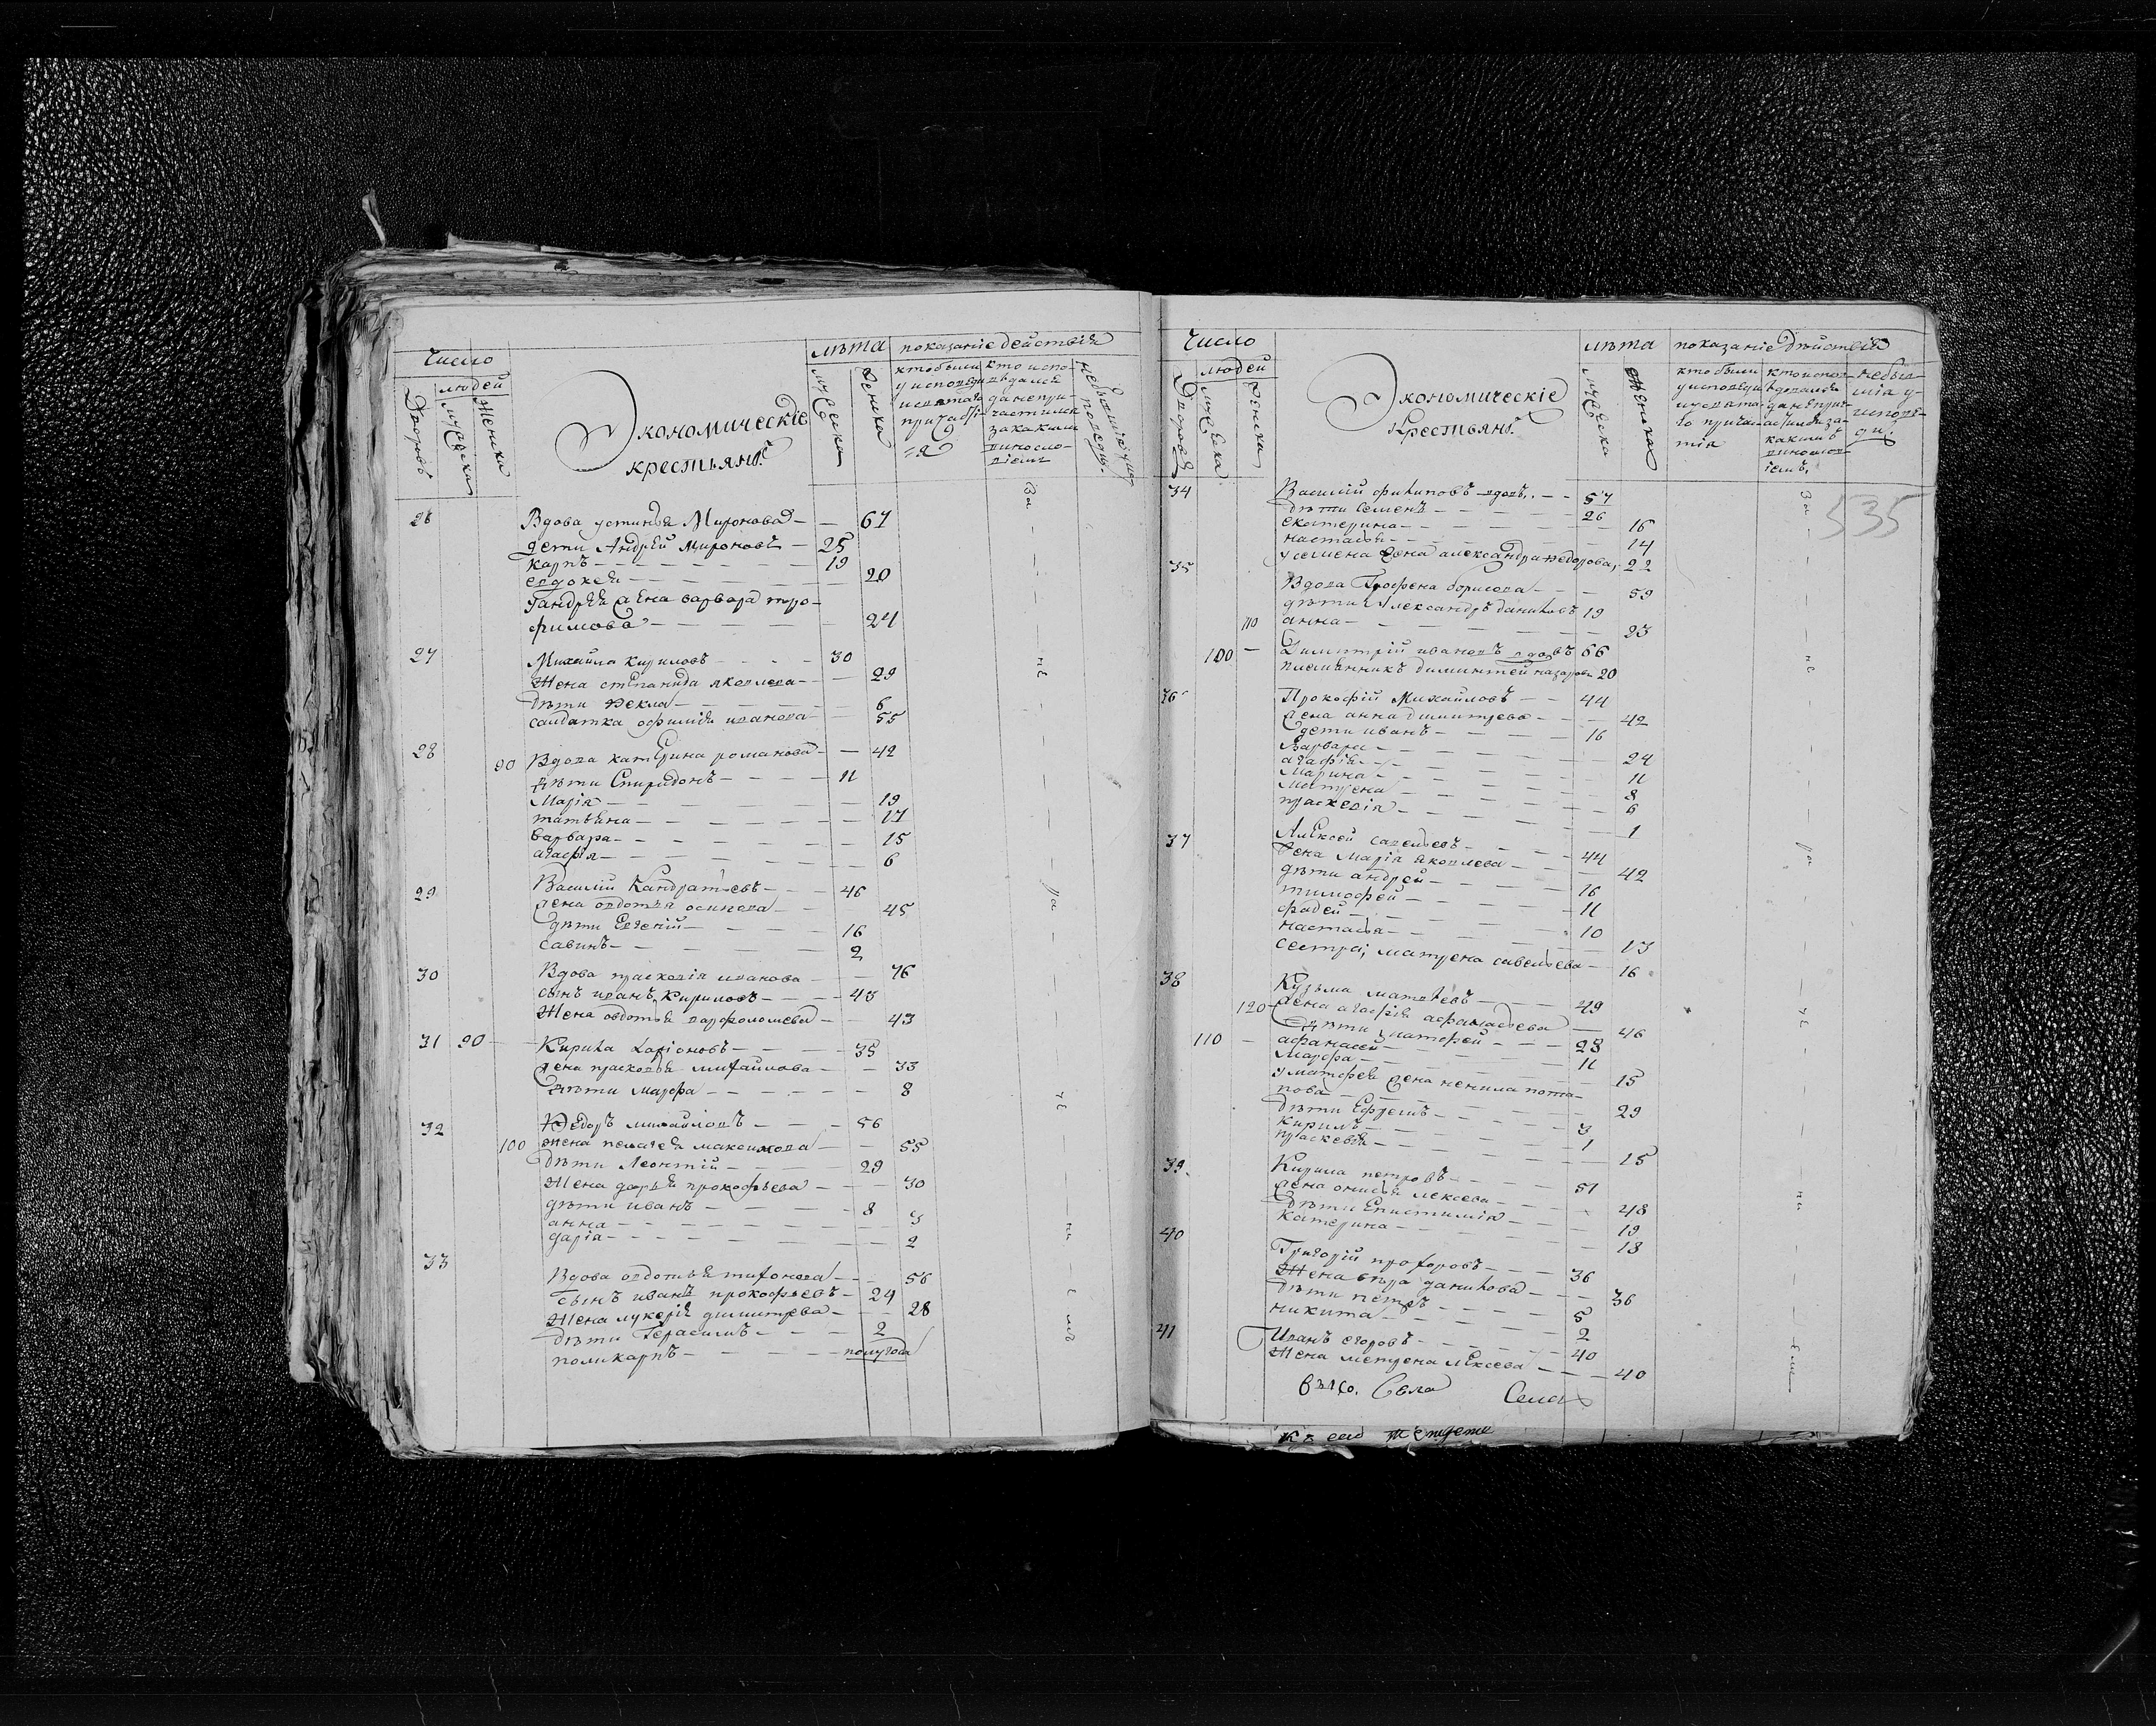 Число
людей
Дворовъ
мужеска
женска
Экономическіе
крестьянѣ
лѣта
мужеска
женска
показаніе действія
кто были
у исповеди
кто испо-
ведался
да непри-
частился
за какимъ
виносло-
віемъ
26 Вдова устинья Миронова — — 67
дети Андрей Мироновъ — 25
Карпъ — — — 19
евдокея — — — 20
у андрея жена варвара тро-
фимова — — — 24
27 Михайла Кириловъ — — 30
Жена степанида яковлева — — 29
Дѣти Ѳекла — — — 6
салдатка офимія иванова — 55
28 90 Вдова катерина романова — — 42
дѣти Спиридонъ — — — 11
Марія — — — 19
татьяна — — — 17
варвара — — — 15
агафія — — — 6
29 Василій Кандратьевъ — — 46
жена овдотья осипова — — 45
дѣти Евгений — — — 16
Савинъ — — — 2
30 Вдова прасковія иванова — 76
сынъ иванъ Кириловъ — — 45
Жена овдотья варфоломеева — — 43
31 90 Кирила Ларіоновъ — — 35
жена прасковья михайлова — — 33
дѣти марфа — — — 8
32 Ѳедоръ михайловъ — — 56
100 жена пелагея максимова — 55
дѣти Леонтій — — — 29
Жена дарья прокофьева — — 30
дѣти иванъ — — — 8
анна — — — 4
дарія — — — 2
33 Вдова овдотья тихонова — — 56
сынъ иванъ прокофьевъ — 24
Жена лукерія димитрева — — 28
дѣти Герасимъ — — — 2
поликарпъ — — — полугода
За
не
ра
че
ни
е мъ
Число
людей
Дворовъ
мужеска
женска
Экономическіе
Крестьянѣ
лѣта
мужеска
женска
показаніе дѣйствій
кто были
у исповеди
кто испов-
не был-
535
34 Василій филиповъ вдовъ — — 57
дѣти Семенъ — — — 26
екатерина — — — 16
настасья — — — 14
у семена жена александра федорова, 22
35 Вдова Графена борисова — — 59
дѣти Александръ даниловъ 19
110 анна — — — 23
100 — Димитрій ивановъ вдовъ 66
племянникъ дементей назаровъ 20
36 Прокофій Михайловъ — — 44
жена анна димитрева — — 42
дети иванъ — — — 16
Варвара — — — 24
агафія — — — 11
Марина — — — 8
Матрена — — — 6
праскевія — — — 1
37 Алексей савельевъ — — 44
жена Марія яковлева — — 42
дѣти андрей — — — 16
тимофей — — — 11
фадей — — — 10
настасья — — — 13
сестра, матрена савельева — 16
38 Кузьма матвѣевъ — — 49
120 — жена агафія афанасьева — 46
дѣти матфей — — — 28
110 — афанасей — — — 11
Марфа — — — 15
у матфея жена ненила пота-
пова — — — 29
дѣти Ефремъ — — — 3
Кирилъ — — — 1
праскевья — — — 15
39 Кирила петровъ — — 51
жена онисья лексева — — 48
дѣти Епистимія — — — 19
Катерина — — — 18
40 Григорій прохоровъ — — 36
Жена вѣра данилова — — 36
дѣти петръ — — — 5
никита — — — 2
41 Иванъ егоровъ — — 40
Жена матрена лексева — — 40
Села Села
За
не
ра
че
ни
емъ